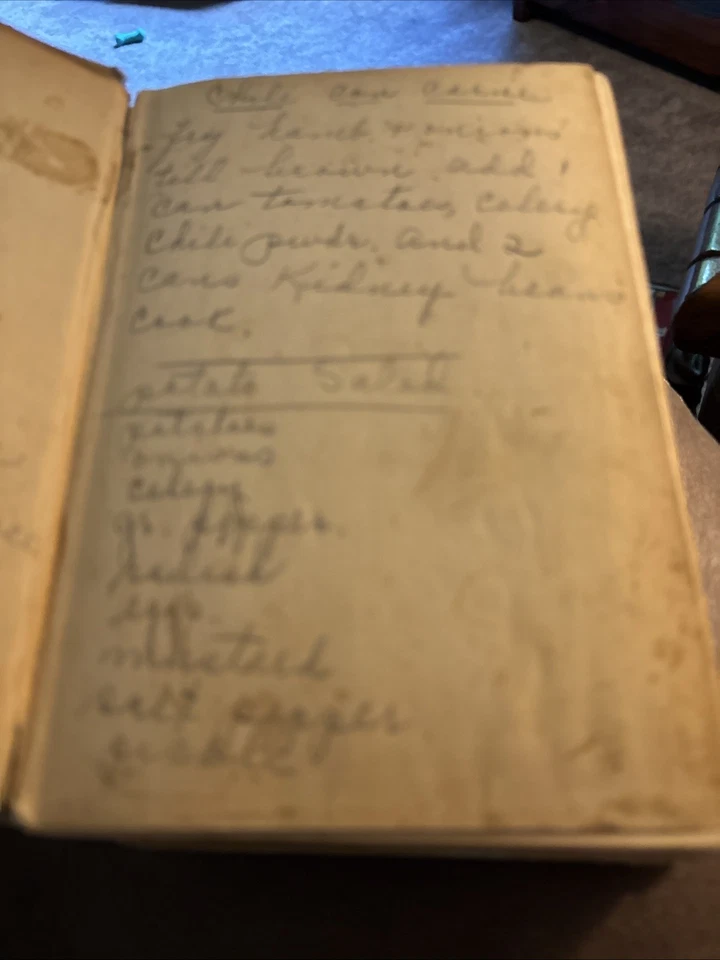 Chile con Carne
Fry hamb. & onions
till brown, add 1
can tomatoes, celery
Chile powdr. and 2
cans Kidney beans
cook.
potato Salad
potatoes
onions
celery
gr. pepper.
radish
egg.
mustard
salt pepper